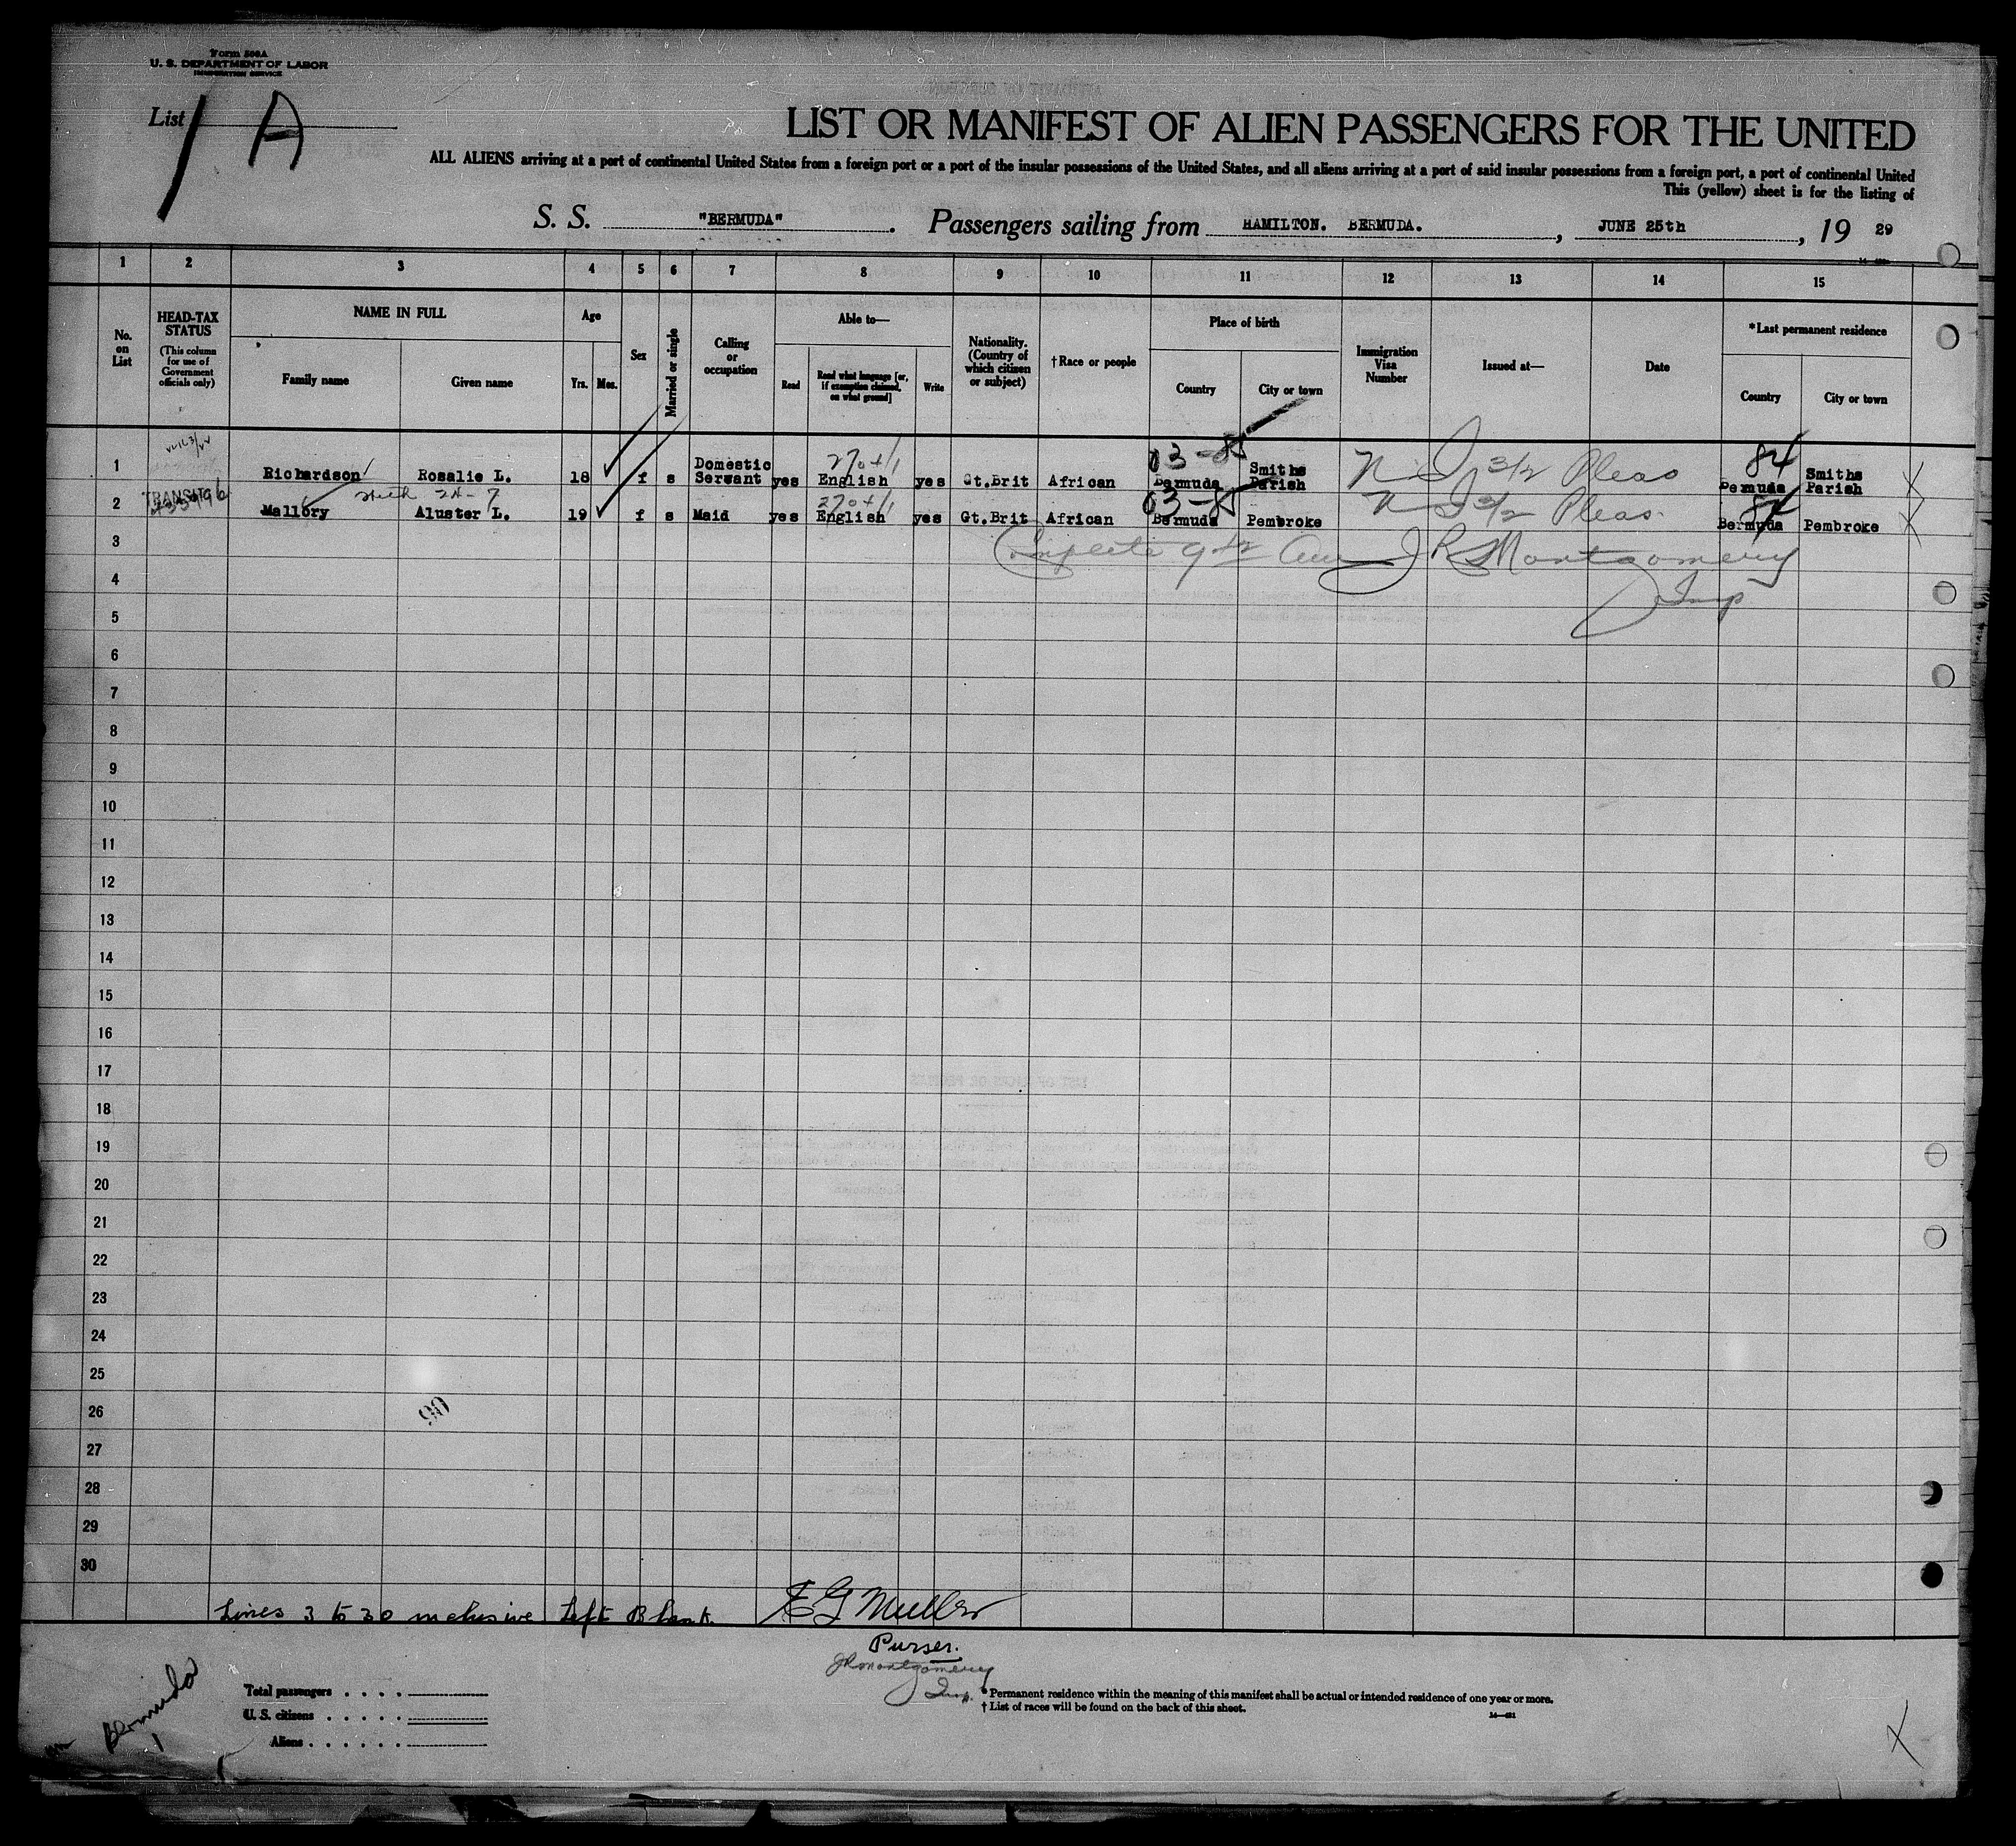 Form 500A
U. S. DEPARTMENT OF LABOR
IMMIGRATION SERVICE
List 1 A
LIST OR MANIFEST OF ALIEN PASSENGERS FOR THE UNITED
ALL ALIENS arriving at a port of continental United States from a foreign port or a port of the insular possessions of the United States, and all aliens arriving at a port of said insular possessions from a foreign port, a port of continental United
This (yellow) sheet is for the listing of
S. S. "BERMUDA". Passengers sailing from HAMILTON. BERMUDA., JUNE 25th, 19 29
1 2 3 4 5 6 7 8 9 10 11 12 13 14 15
No. on List
HEAD-TAX STATUS (This column for use of Government officials only)
NAME IN FULL
Family name
Given name
Age
Yrs.
Mos.
Sex
Married or single
Calling or occupation
Able to—
Read
Read what language [or, if exemption claimed, on what ground]
Write
Nationality. (Country of which citizen or subject)
†Race or people
Place of birth
Country
City or town
Immigration Visa Number
Issued at—
Date
*Last permanent residence
Country
City or town
03-85 84
1 Richardson Rosalie L. 18 f s Domestic Servant yes English yes Gt.Brit African Bermuda Smiths Parish 3/2 Pleas Bermuda Smiths Parish
TRANSIT
03-85 84
2 Mallory Aluster L. 19 f s Maid yes English yes Gt.Brit African Bermuda Pembroke 3/2 Pleas. Bermuda Pembroke
3
Complete J R Montgomery
Insp
4
5
6
7
8
9
10
11
12
13
14
15
16
17
18
19
20
21
22
23
24
25
26
90
27
28
29
30
Lines 3 to 30 inclusive Left Blank. E G Muller
Purser.
J R Montgomery
Insp.
Bermuda
1
Total passengers
U. S. citizens
Aliens
* Permanent residence within the meaning of this manifest shall be actual or intended residence of one year or more.
† List of races will be found on the back of this sheet.
X